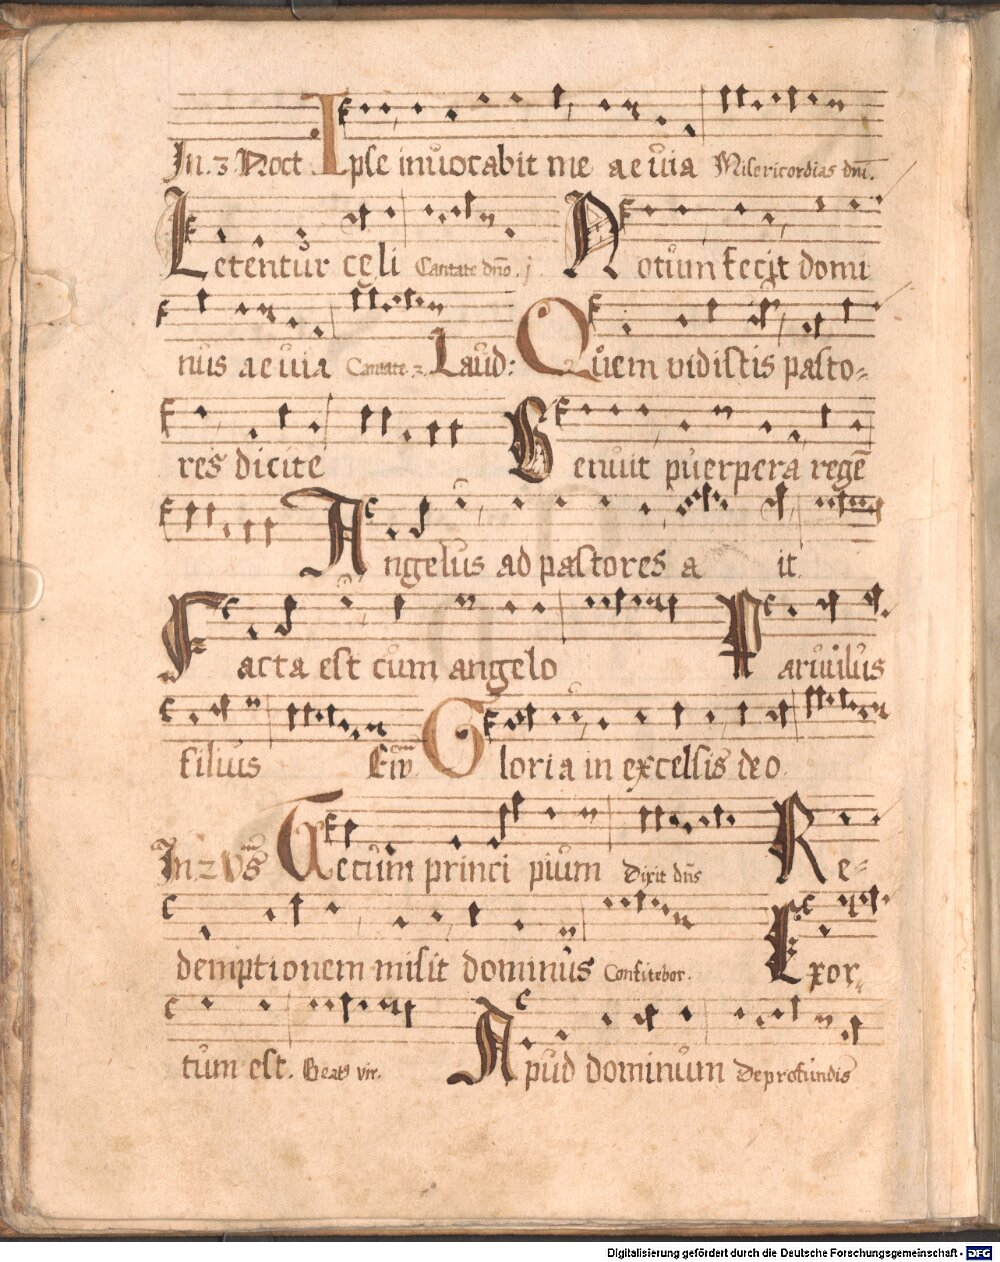 In. 3. Noct Ipse inuocabit me aeuia Misericordias dm̄.
Letentur celi Cantate dn̄o. j. Notum fecit domi
nus aeuia Cantate 2. Laud: Quem vidistis pasto-
res dicite Genuit puerpera regē
Angelus ad pastores a it.
Facta est cum angelo Paruulus
filius Gloria in excelsis deo.
In 2 Vs̄ Tecum principium Dixit dn̄s Re-
demptionem misit dominus Confitebor. Exor-
tum est. Beatꝰ vir. Apud dominum De profundis
Digitalisierung gefördert durch die Deutsche Forschungsgemeinschaft - DFG